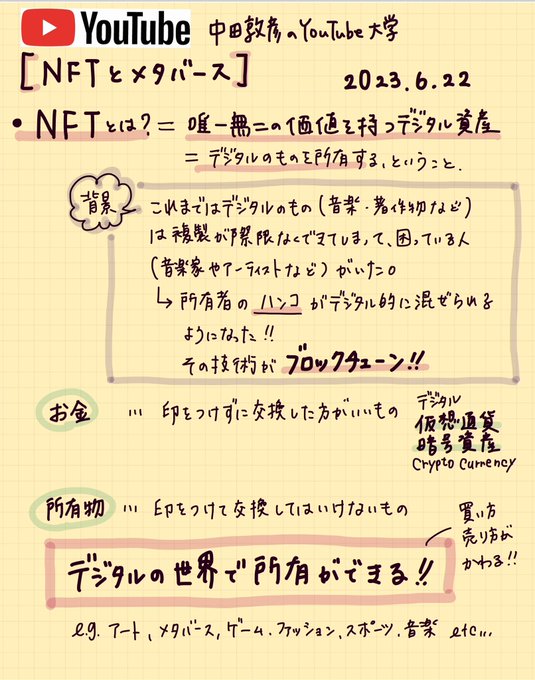 YouTube 中田敦彦のYouTube大学
[NFTとメタバース] 2023.6.22
・NFTとは?= 唯一無二の価値を持つデジタル資産
= デジタルのものを所有する、ということ、
背景
これまではデジタルのもの(音楽・著作物など)
は複製が際限なくできてしまって、困っている人
(音楽家やアーティストなど)がいた。
↳ 所有者のハンコがデジタル的に混ぜられる
ようになった!!
その技術がブロックチェーン!!
お金 … 印をつけずに交換した方がいいもの
デジタル
仮想通貨
暗号資産
Crypto Currency
所有物 … 印をつけて交換してはいけないもの
買い方
売り方が
かわる!!
デジタルの世界で所有ができる!!
e.g. アート、メタバース、ゲーム、ファッション、スポーツ、音楽 etc...